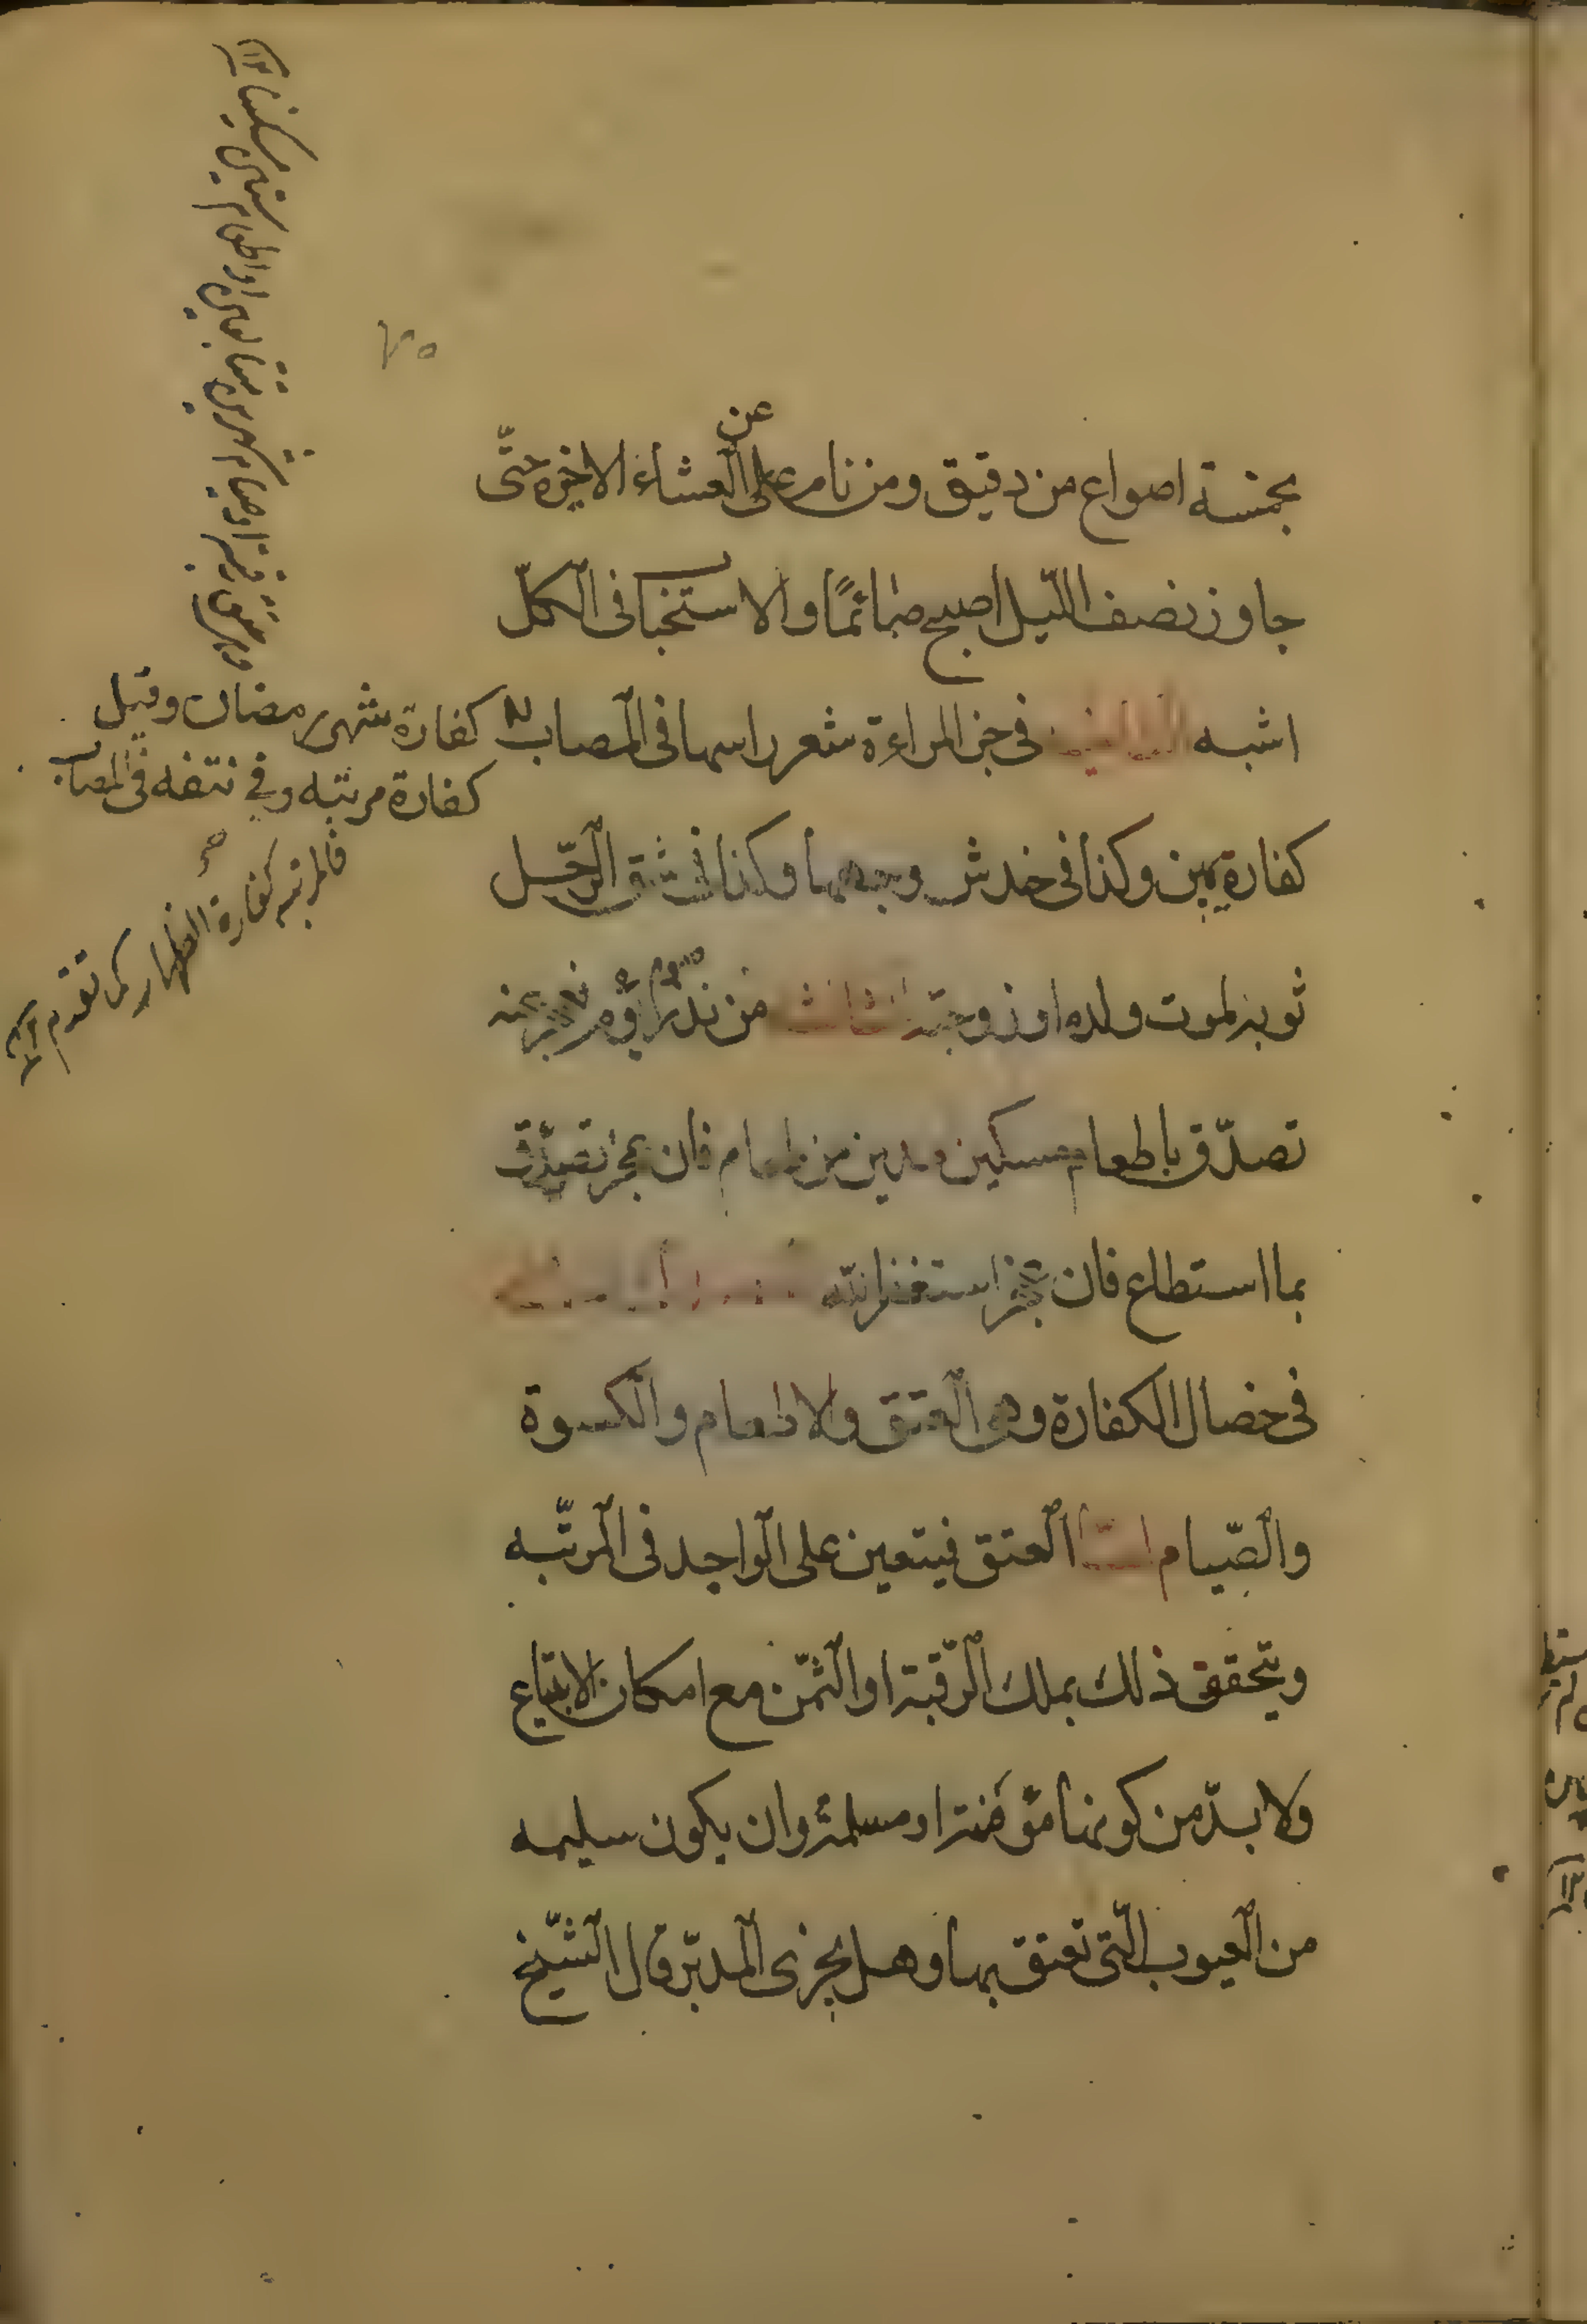 بخمسة اصواع من دقيق ومن نام على العشاء الاخيرة حتّى
عن
جاوز نصف اللّيل اصبح صائمًا والاستحباب فى الكلّ
اشبه الثانيه فى جز المراءة شعر راسها فى المصاب
كفارة شهر رمضان وقيل
كفارة مرتبه وفي نتفه فى المصاب
كفارة يمين وكذا فى خدش وجهها وكذا فى شق الرّجل
ثوبه لموت ولده او زوجته الثالثه من نذر صوم يوم فعجز عنه
تصدّق باطعام مسكين مدين من طعام فان عجز تصدّق
بما استطاع فان عجز استغفر الله
فى خصال الكفارة وهى العتق والاطعام والكسوة
والصّيام امّا العتق فيتعين على الواجد فى المرتّبه
ويتحقق ذلك بملك الرّقبة او الثمّن مع امكان الابتياع
ولا بدّ من كونها مؤمنة او مسلمة وان يكون سليمه
من العيوب الّتى تعتق بها وهل يجزى المدبّر قال الشّيخ
عتق رقبة او صيام شهرين متتابعين او اطعام ستين مسكينا
فالمرتبه كفارة الظهار كما تقدم